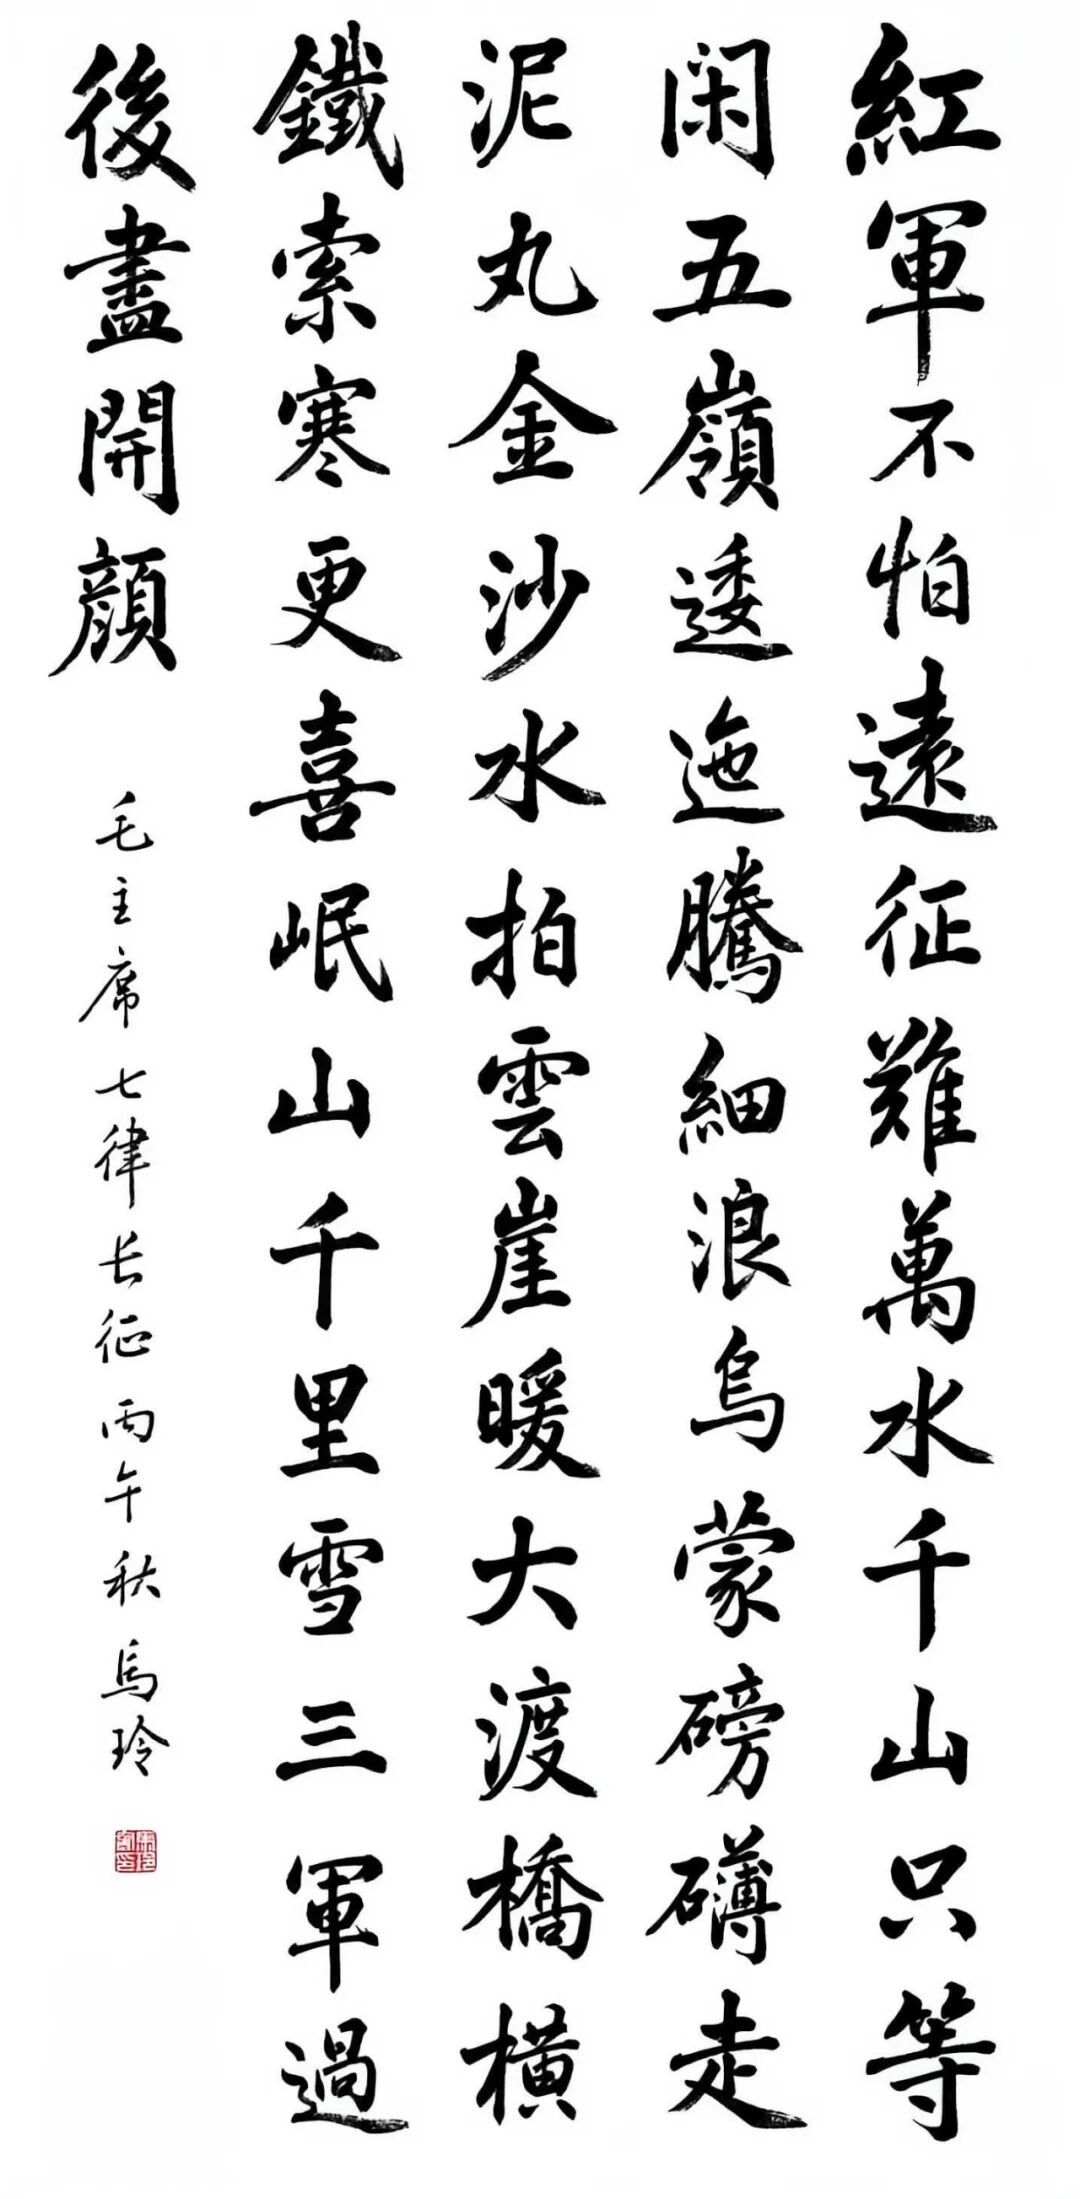 紅軍不怕遠征難萬水千山只等
閑五嶺逶迤騰細浪烏蒙磅礴走
泥丸金沙水拍雲崖暖大渡橋橫
鐵索寒更喜岷山千里雪三軍過
後盡開顏
毛主席七律长征丙午秋馬玲